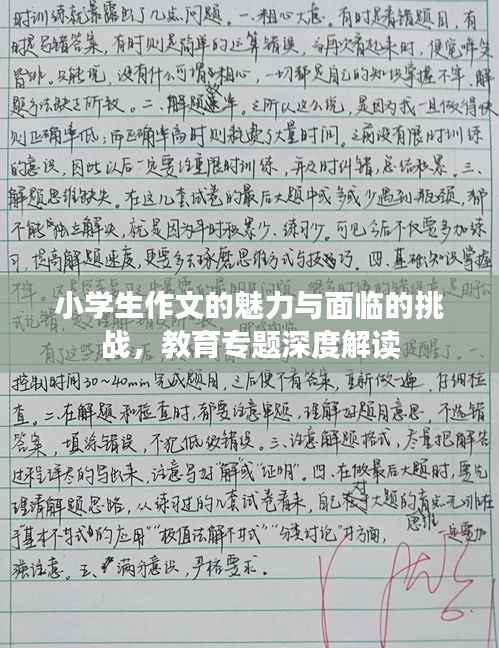 时训练就暴露出了几点问题。一.粗心大意。有时是看错题目，有
时是写错答案，有时则是简单的运算错误，
皆非。只能说，没有什么可谓的粗心，一切都是自己的知识掌握不牢、解
题方法缺乏所致。二、解题速率。之所以这么说，是因为我一旦做得快
则正确率低；而正确率高时则耗费了大量时间。之前没有限时训练
的意识，因此以后一定要注重限时训练，并及时纠错，总结积累。三、
解题思维缺失。在这几套试卷的最后大题中或多或少遇到瓶颈，都
不能独立解决，就是因为平时积累少、练习少。可见今后不仅要多加练
习，提高解题速度，更要多去琢磨思维方式与技巧。四.基础知识掌握
小学生作文的魅力与面临的挑
战，教育专题深度解读
控制时间30~40min完成题目，之后便不看答案，重新做一遍，仔细检
查。二.在解题和检查时，都要注意审题，理解好题目意思，不选错
答案，填涂错误，不犯低级错误。三.注意解题格式，尽量把解答
过程详尽的写出来，注意写好“解”或“证明”。四.在做最后大题时，要先
理清解题思路，从练习过的几套试卷看来，自己在大题的
于“基本不等式的应用”“极值法解不等式”“分类讨论”等方面，思维一定要加
强注意。五.满分意识，严格要求。